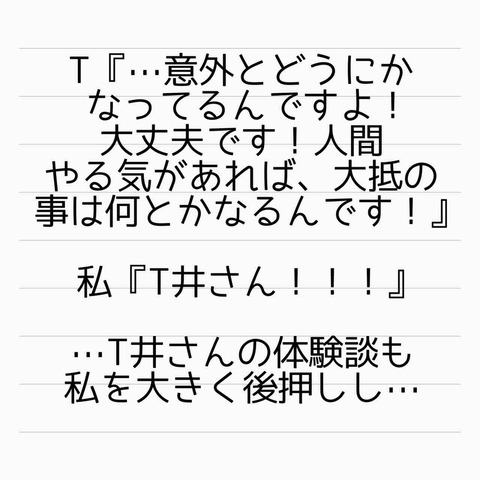 T『…意外とどうにか
なってるんですよ！
大丈夫です！人間
やる気があれば、大抵の
事は何とかなるんです！』
私『T井さん！！！』
…T井さんの体験談も
私を大きく後押しし…